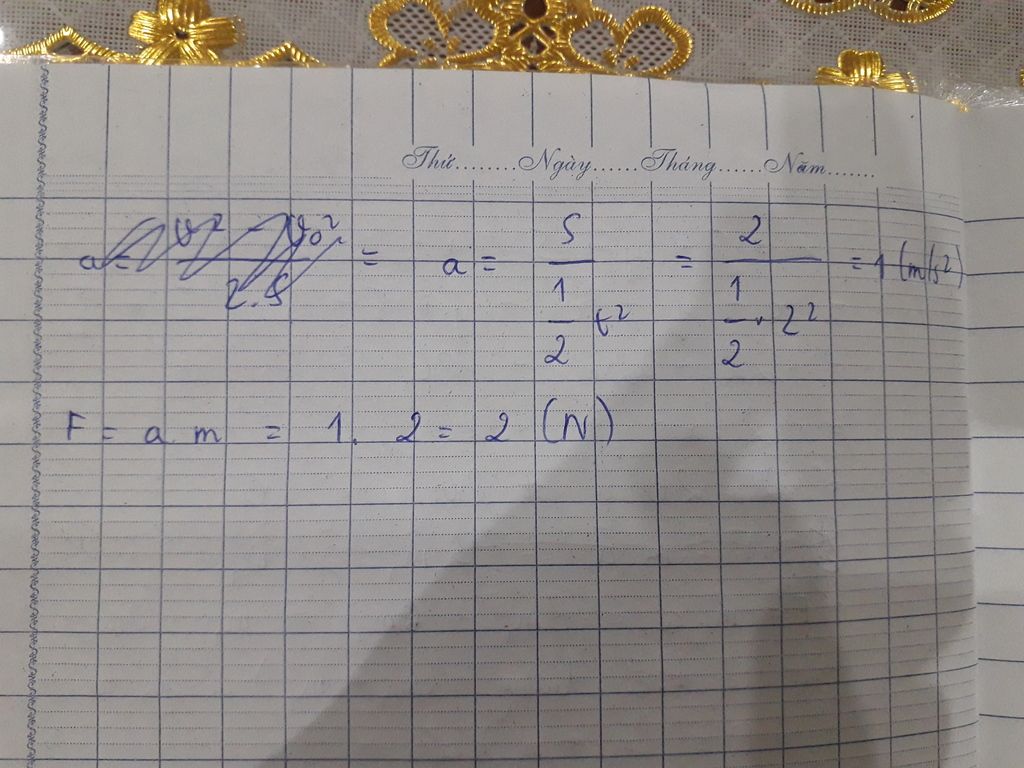 Thứ........Ngày......Tháng......Năm.......
a = v² - v₀² / 2.S = a = S / (1/2 t²) = 2 / (1/2 . 2²) = 1 (m/s²)
F = a m = 1. 2 = 2 (N)